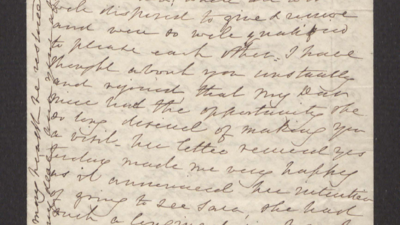 well disposed to give & receive
and were so well qualified
to please each other. I have
thought about you constantly
and rejoiced that my Dear
once had the opportunity she
so long desired of making you
a visit. her letter received yes
terday made me very happy
as it announced her intention
of going to see Sara, she had
such a
may health be restored